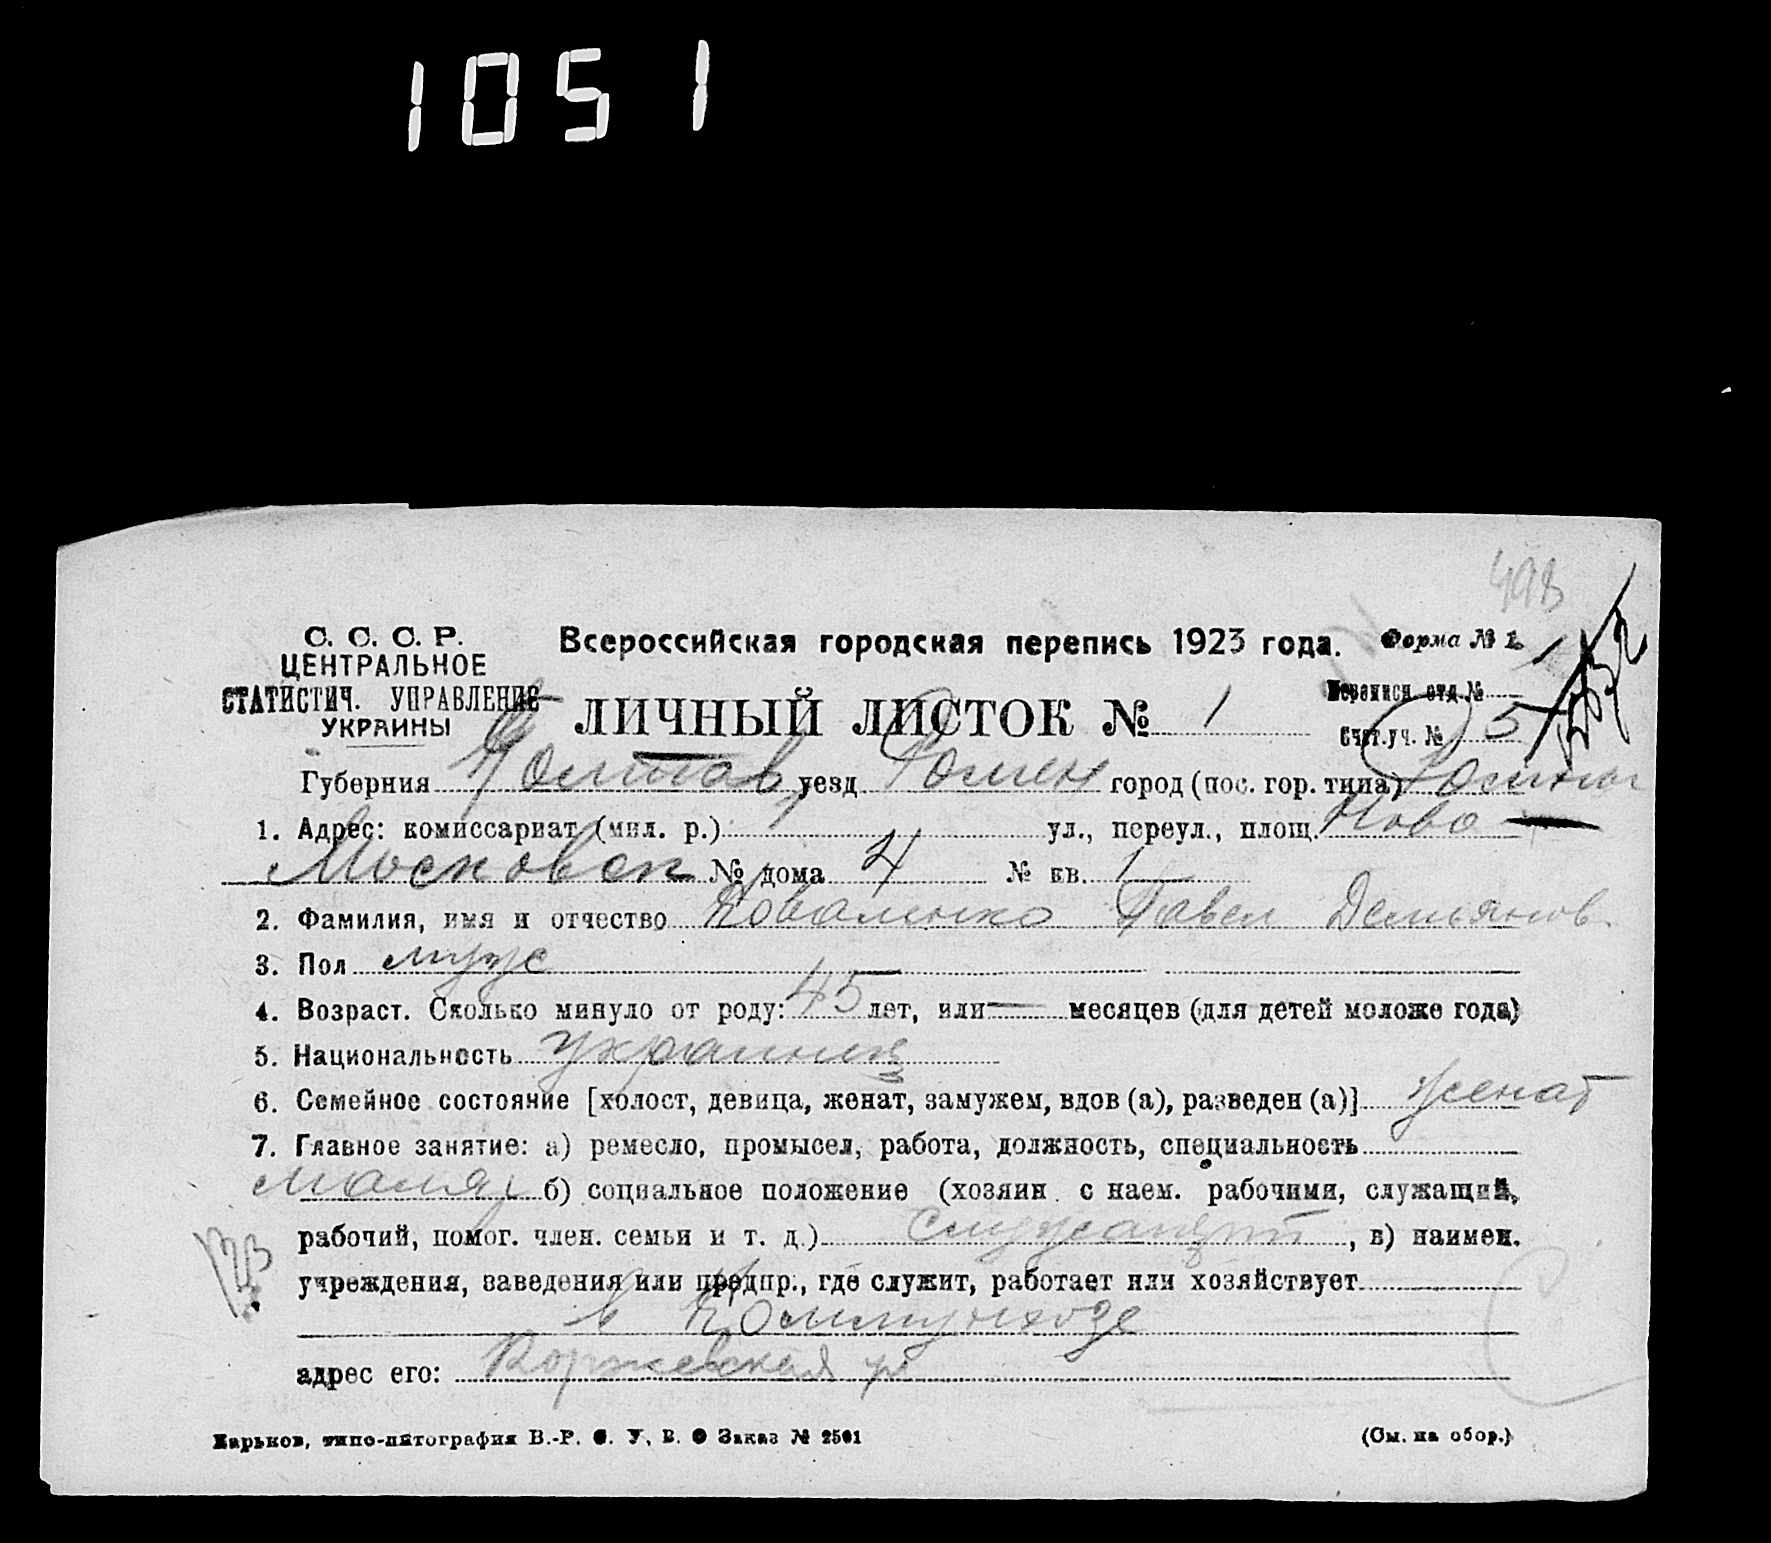 1051
498
С. С. С. Р.
ЦЕНТРАЛЬНОЕ
СТАТИСТИЧ. УПРАВЛЕНИЕ
УКРАИНЫ
Всероссийская городская перепись 1923 года.
Форма № 1.
ЛИЧНЫЙ ЛИСТОК № 1
Переписн. отд. №
Счет. уч. № 5
Губерния Полтав уезд Ромен город (пос. гор. типа) Ромны
1. Адрес: комиссариат (мил. р.) ул., переул., площ. Ново —
Московск № дома 4 № кв. 1
2. Фамилия, имя и отчество Коваленко Павел Демьянов.
3. Пол муж
4. Возраст. Сколько минуло от роду: 45 лет, или — месяцев (для детей моложе года)
5. Национальность украинец
6. Семейное состояние [холост, девица, женат, замужем, вдов (а), разведен (а)] женат
7. Главное занятие: а) ремесло, промысел, работа, должность, специальность
маляр б) социальное положение (хозяин с наем. рабочими, служащий,
рабочий, помог. член. семьи и т. д.) служащий, в) наимен.
учреждения, заведения или предпр., где служит, работает или хозяйствует
в Коммунхозе
адрес его: Коржевская ул
Харьков, типо-литография В.-Р. С. У, В. О Заказ № 2501
(См. на обор.)